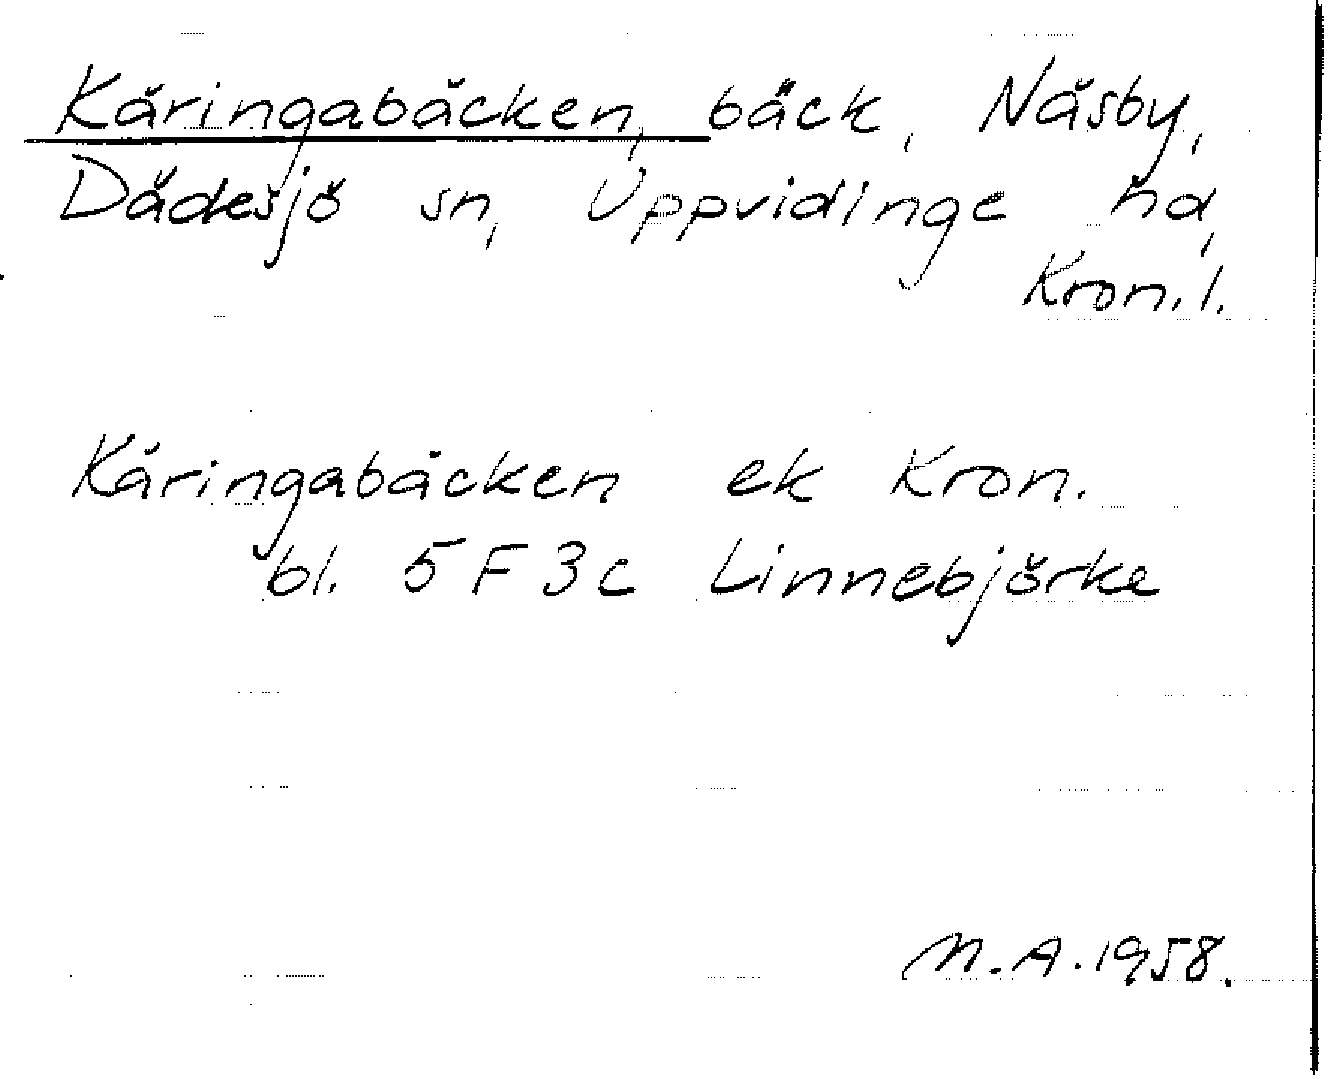 Käringabäcken, bäck, Näsby,
Dädesjö sn, Uppvidinge hd,
Kron.l.
Käringabäcken ek Kron.
bl. 5 F 3 c Linnebjörke
M.A. 1958.